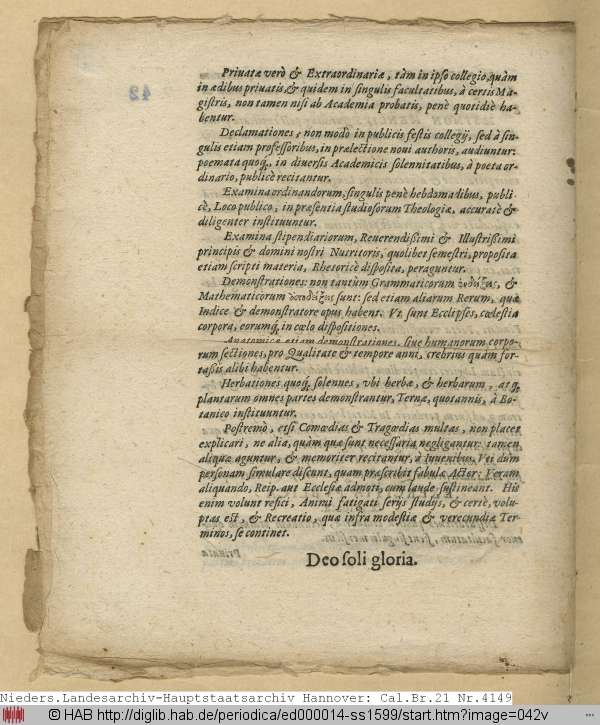 Privatæ verò & Extraordinariæ, tàm in ipso collegio, quàm
in ædibus privatis, & quidem in singulis facultatibus, à certis Ma-
gistris, non tamen nisi ab Academia probatis, penè quotidiè ha-
bentur.
Declamationes, non modò in publicis festis collegij, sed à sin-
gulis etiam professoribus, in prælectione novi authoris, audiuntur:
poemata quoq́, in diversis Academicis solennitatibus, à poeta or-
dinario, publicè recitantur.
Examina ordinandorum, singulis penè hebdomadibus, publi-
cè, Loco publico, in præsentia studiosorum Theologiæ, accuratè &
diligenter instituuntur.
Examina stipendiariorum, Reverendissimi & Illustrissimi
principis & domini nostri Nutritoris, quolibet semestri, proposita
etiam scripti materia, Rhetoricè disposita, peraguntur.
Demonstrationes: non tantum Grammaticorum &
Mathematicorum sunt: sed etiam aliarum Rerum, quæ
Indice & demonstratore opus habent. Vt sunt Ecclipses, cœlestia
corpora, eorumq́, in cœlo dispositiones.
Anatomicæ etiam demonstrationes, sive humanorum corpo-
rum sectiones, pro Qualitate & tempore anni, crebrius quàm for-
taßis alibi habentur.
Herbationes quoq́, solennes, vbi herbæ, & herbarum, atq́,
plantarum omnes partes demonstrantur, Ternæ, quotannis, à Bo-
tanico instituuntur.
Postremò, etsi Comœdias & Tragœdias multas, non placet
explicari, ne alia, quàm quæ sunt necessaria negligantur: tamen
aliquæ aguntur, & memoriter recitantur, à Iuvenibus, Vt dum
personam simulare discunt, quam præscribit fabulæ Actor: Veram
aliquando, Reip. aut Ecclesiæ admoti, cum laude sustineant. His
enim volunt refici, Animi fatigati serijs studijs, & certè, volu-
ptas est, & Recreatio, quæ infra modestiæ & verecundiæ Ter-
minos, se continet.
Deo soli gloria.
Nieders.Landesarchiv-Hauptstaatsarchiv Hannover: Cal.Br.21 Nr.4149
© HAB http://diglib.hab.de/periodica/ed000014-ss1599/start.htm?image=042v